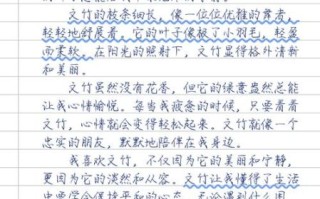 文竹的枝条细长，像一位位优雅的舞者，
轻轻地舒展着。它的叶子像极了小羽毛，轻盈
而柔软。在阳光的照射下，文竹显得格外清新
和美丽。
文竹虽然没有花香，但它的绿意盎然总能
让我心情愉悦。每当我疲惫的时候，只要看看
文竹，心情就会变得轻松起来。文竹就像一个
忠实的朋友，默默地陪伴在我身边。
我喜欢文竹，不仅因为它的美丽和宁静，
更因为它的淡然和从容。文竹让我懂得了生活
中要学会保持平和的心态，无论遇到什么困